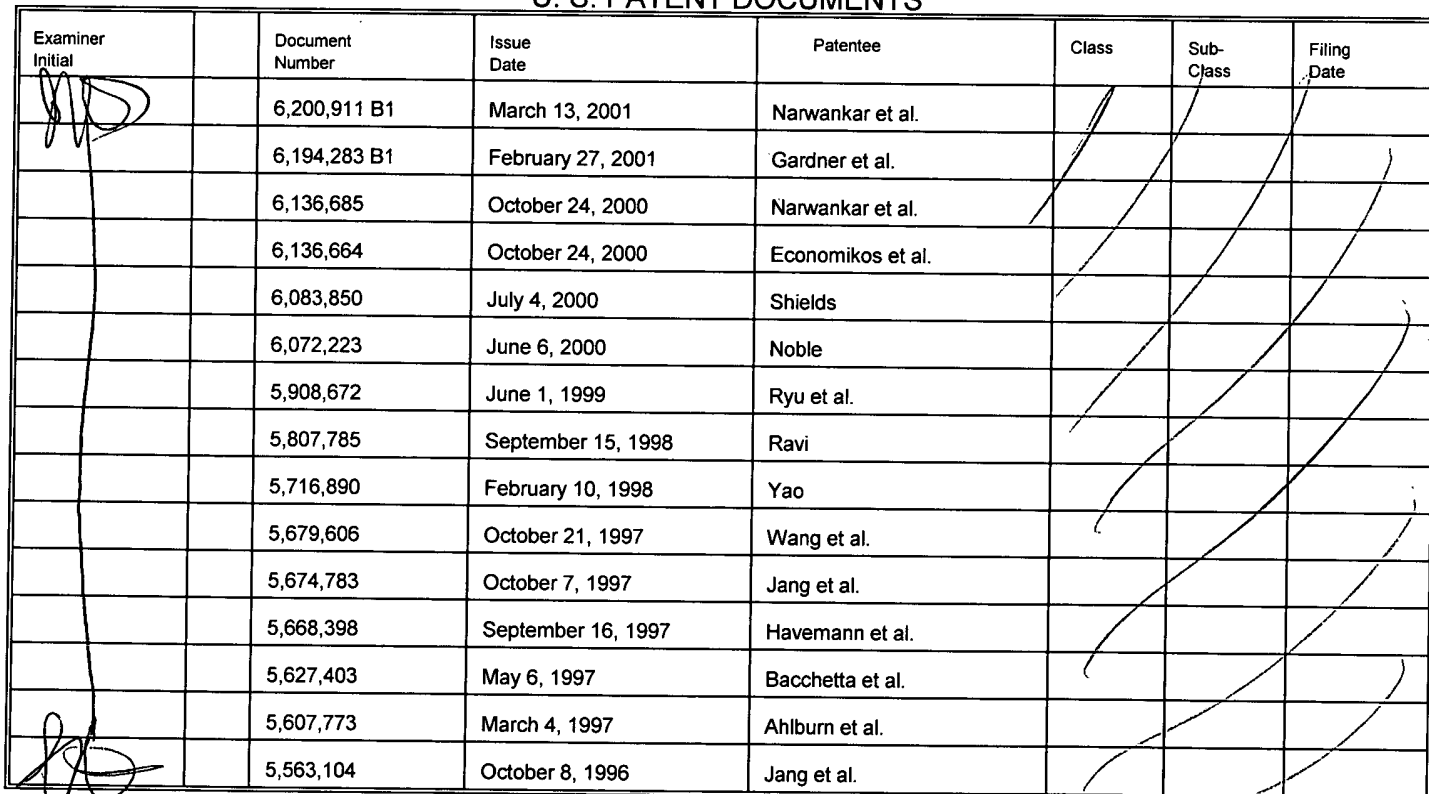 U. S. PATENT DOCUMENTS
Examiner Initial Document Number Issue Date Patentee Class Sub-Class Filing Date
6,200,911 B1 March 13, 2001 Narwankar et al.
6,194,283 B1 February 27, 2001 Gardner et al.
6,136,685 October 24, 2000 Narwankar et al.
6,136,664 October 24, 2000 Economikos et al.
6,083,850 July 4, 2000 Shields
6,072,223 June 6, 2000 Noble
5,908,672 June 1, 1999 Ryu et al.
5,807,785 September 15, 1998 Ravi
5,716,890 February 10, 1998 Yao
5,679,606 October 21, 1997 Wang et al.
5,674,783 October 7, 1997 Jang et al.
5,668,398 September 16, 1997 Havemann et al.
5,627,403 May 6, 1997 Bacchetta et al.
5,607,773 March 4, 1997 Ahlburn et al.
5,563,104 October 8, 1996 Jang et al.